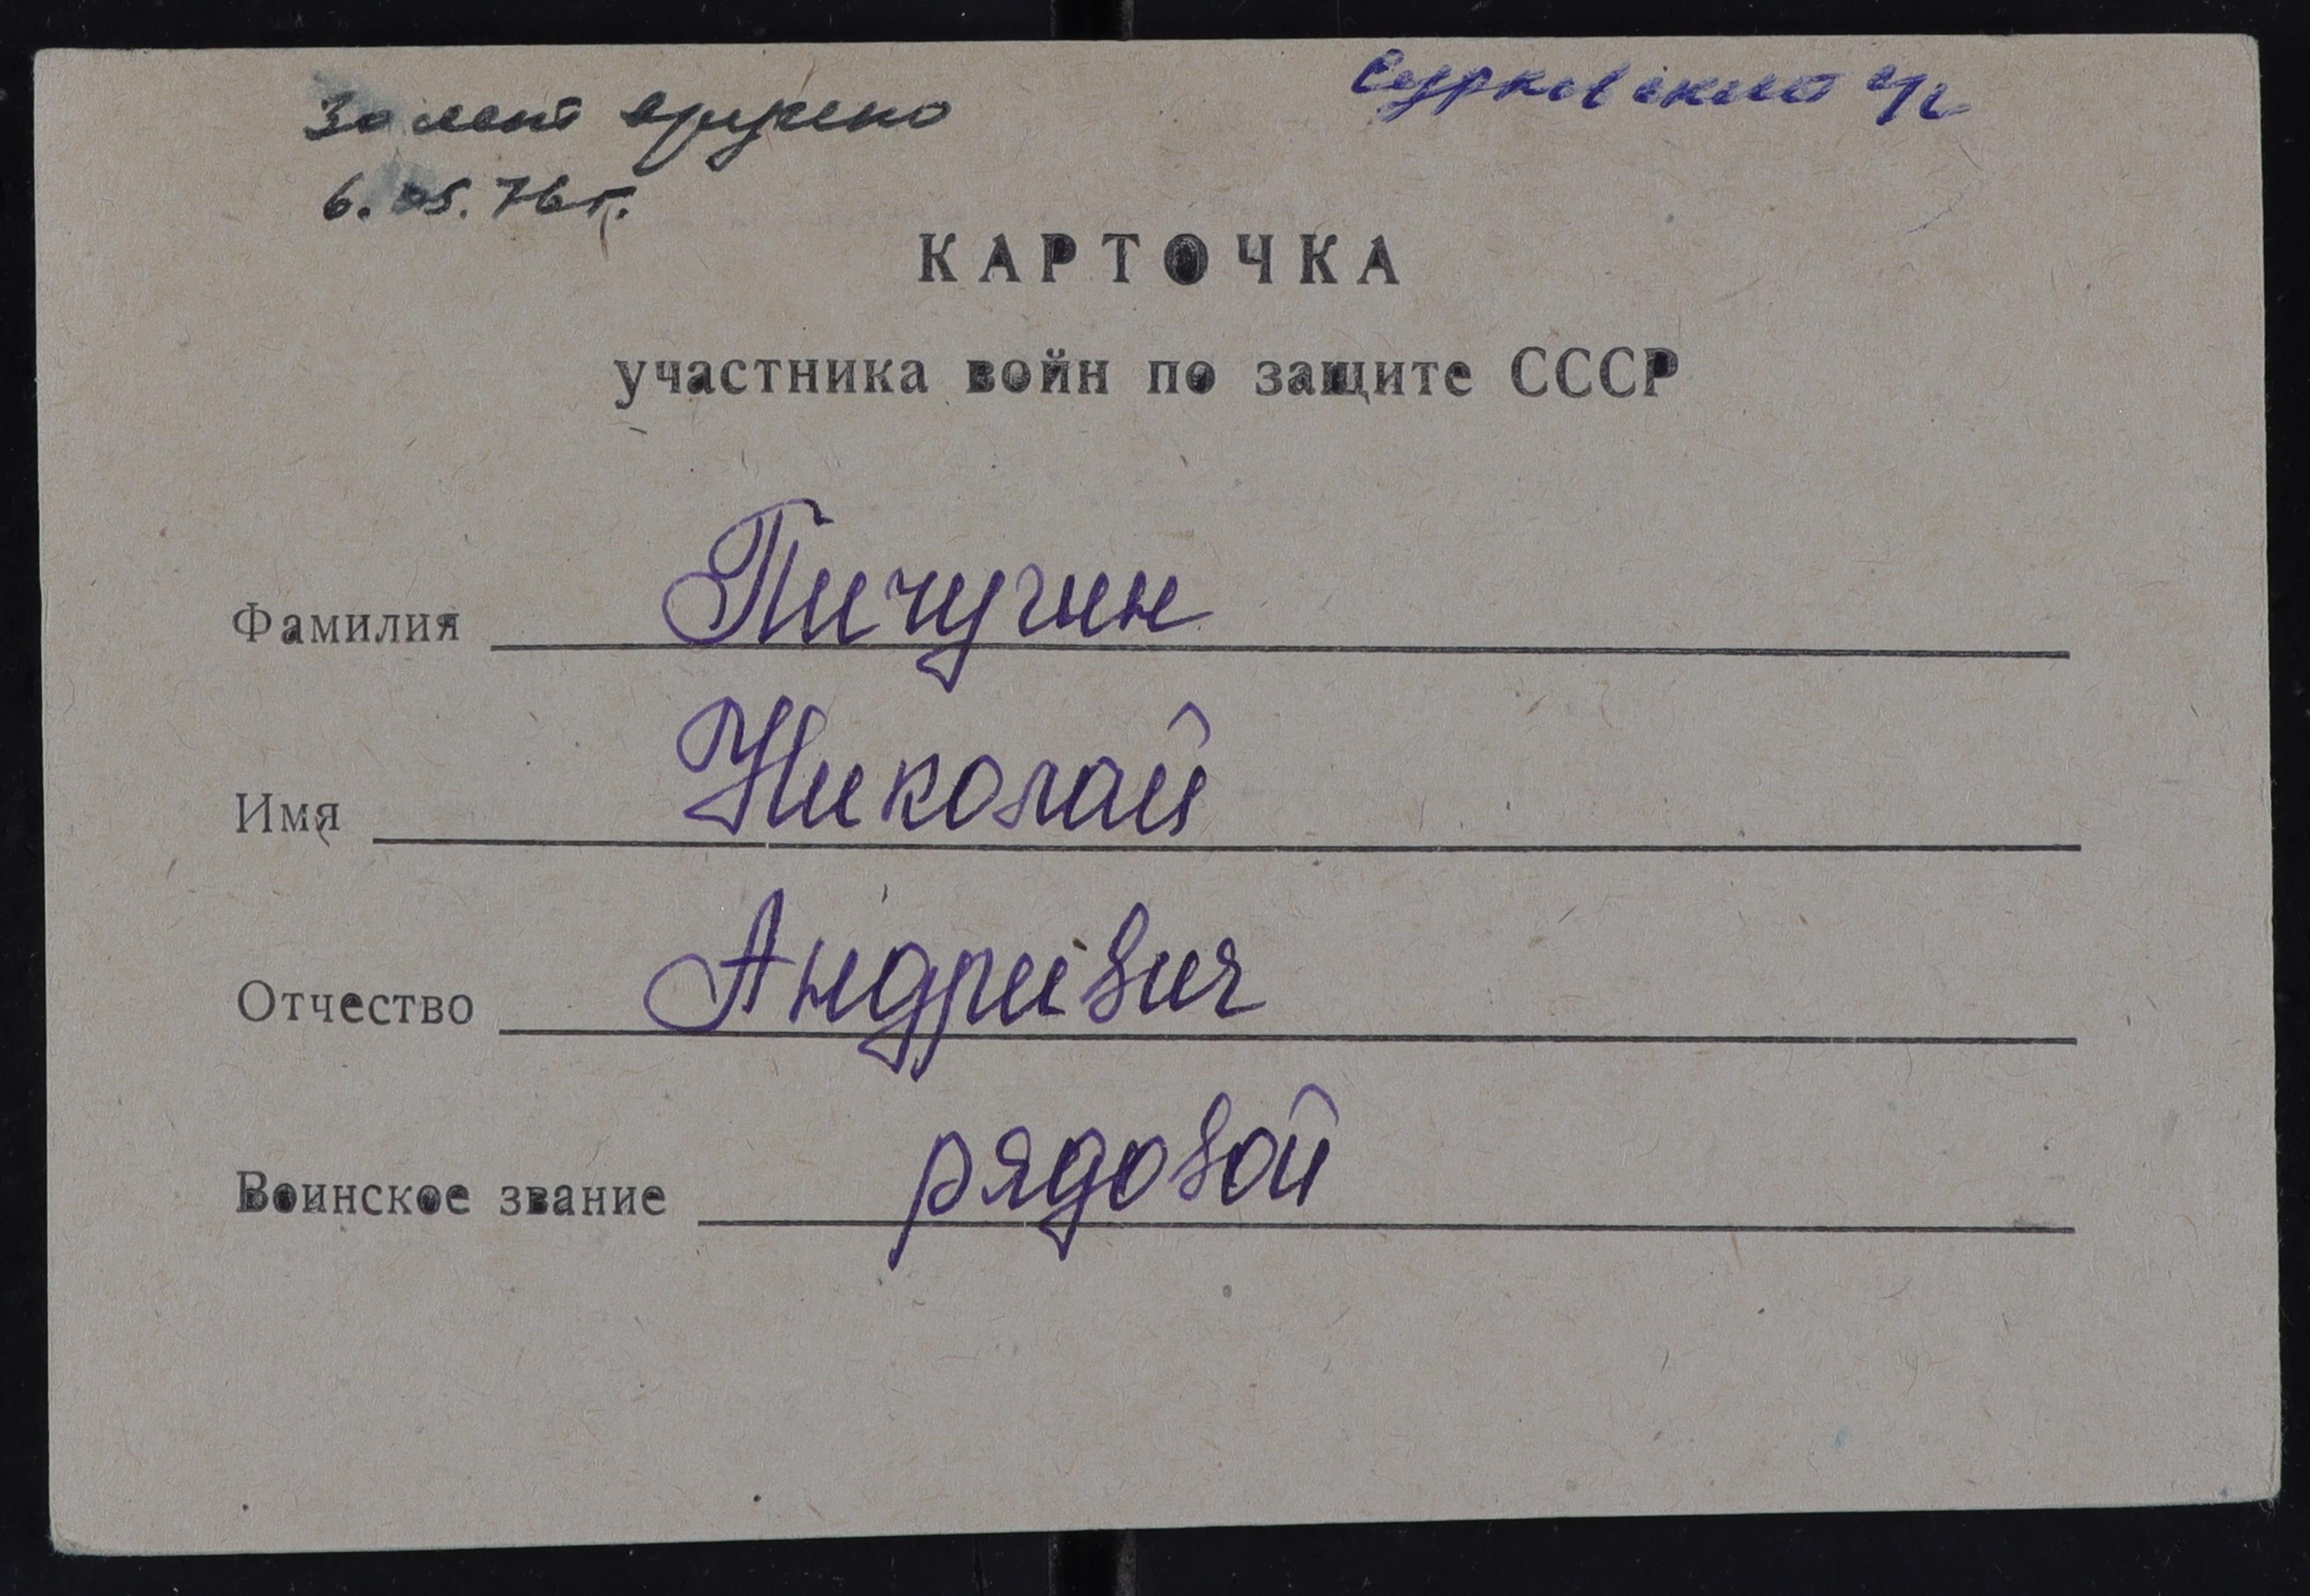 30 лет вручено
6.05.76 г.
Сурковский с/с
КАРТОЧКА
участника войн по защите СССР
Фамилия Пичугин
Имя Николай
Отчество Андреевич
Воинское звание рядовой